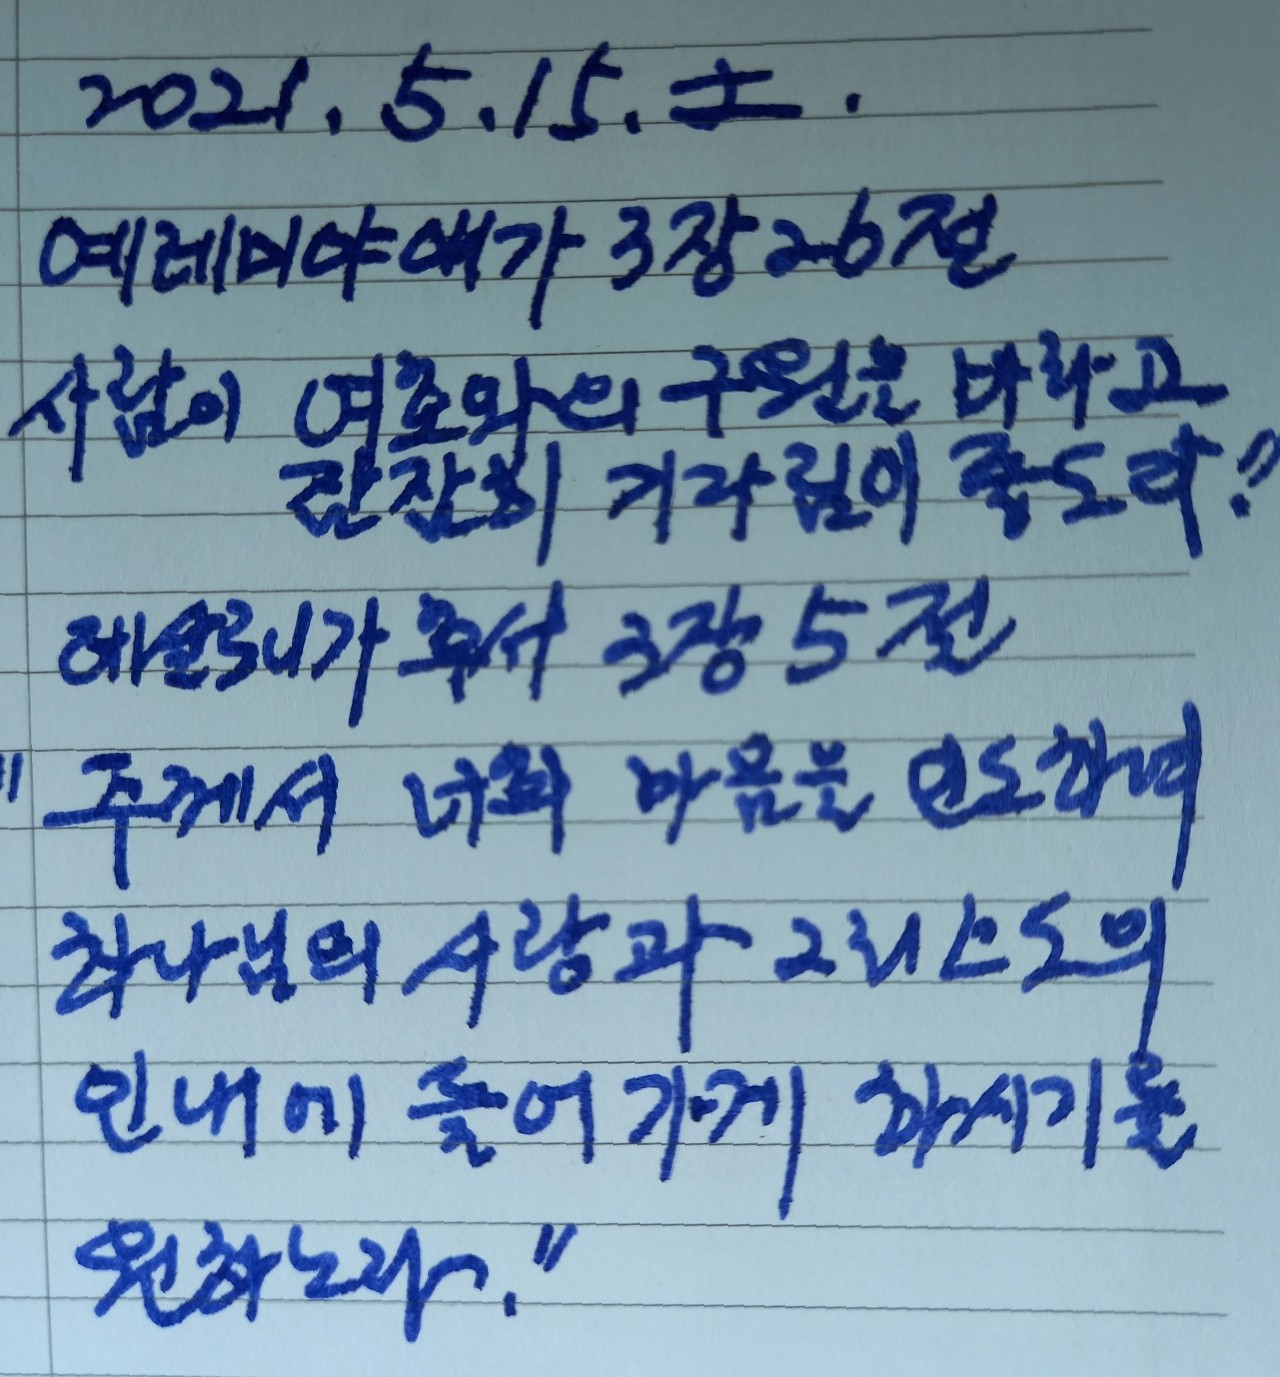 2021. 5. 15. 土.
예레미야애가 3장 26절
사람이 여호와의 구원을 바라고
잠잠히 기다림이 좋도다."
데살로니가 후서 3장 5절
"주께서 너희 마음을 인도하여
하나님의 사랑과 그리스도의
인내에 들어가게 하시기를
원하노라."